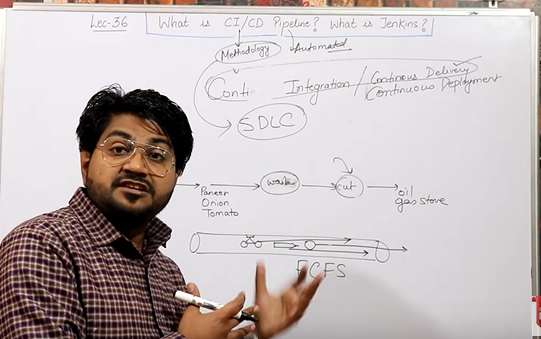 Lec-36 What is CI/CD Pipeline? What is Jenkins?
Methodology Automated
Conti Integration / Continous Delivery
Continuous Deployment
SDLC
Paneer
Onion
Tomato
wash
cut
oil
gas stove
FCFS